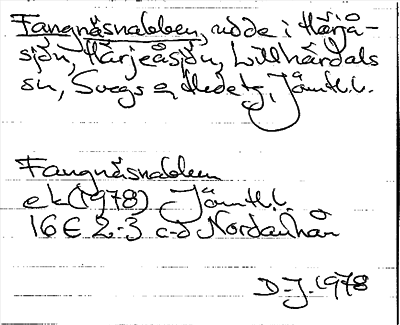 Fangnäsnabben, udde i Härjå-
sjön, Härjeåsjön, Lillhärdals
sn, Svegs o Hede tg, Jämtl. l.
Fangnäsnabben
ek (1978) Jämtl. l.
16 E 2-3 c-d Nordanhån
D-J. 1978